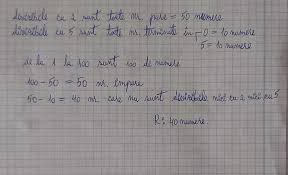 divizibile cu 2 sunt toate nr. pare = 50 numere
divizibile cu 5 sunt toate nr. terminate in 0 = 10 numere
5 = 10 numere
de la 1 la 100 sunt 100 de numere
100-50 = 50 nr. impare
50-10 = 40 nr. care nu sunt divizibile nici cu 2 nici cu 5
R: 40 numere.